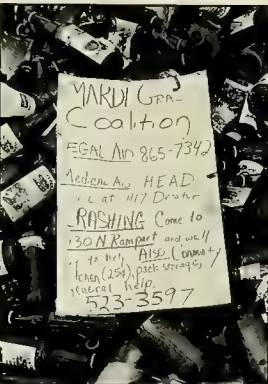 MARDI GRA-
Coalition
EGAL AID 865-7342
Medical Aid HEAD
at 1117 Decatur
RASHING Come to
130 N Rampart and we'll
to help ALSO Commu ty
(25¢), pack storage,
eneral help.
523-3597